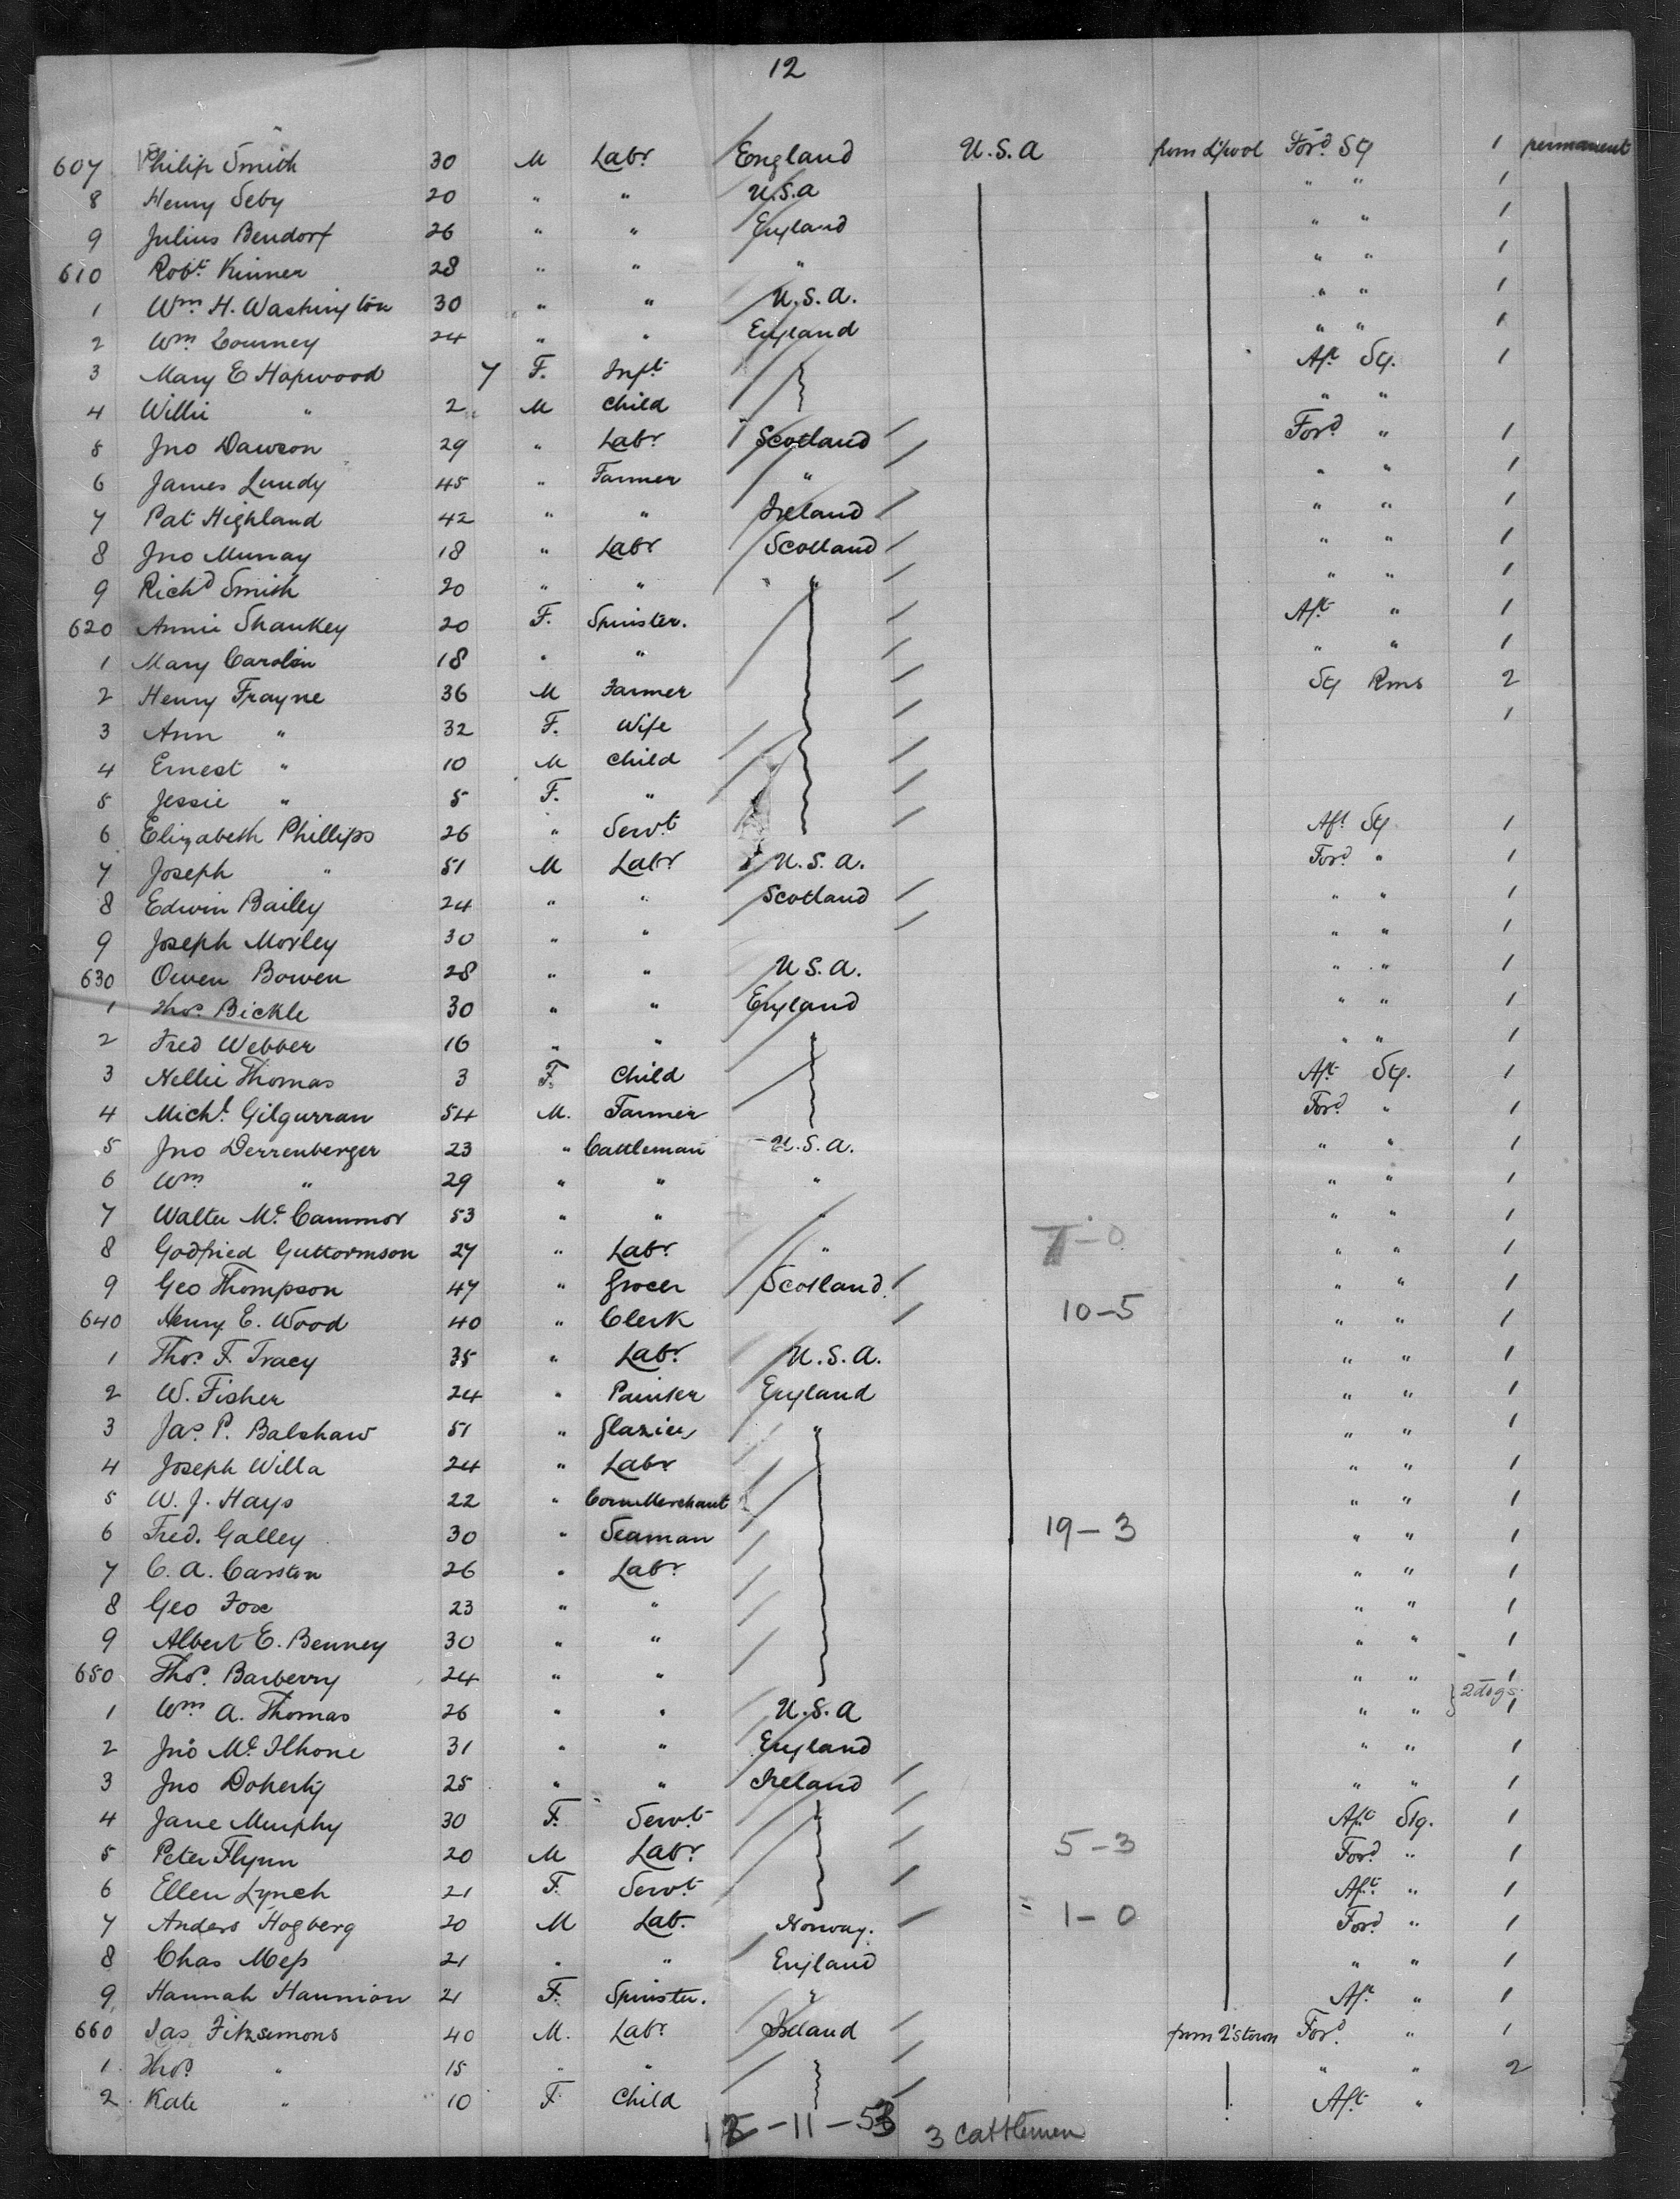 12
607 Philip Smith 30 M Labr England U.S.A from L'pool Ford Stg 1 permanent
8 Henry Seby 20 " " U.S.A " " 1
9 Julius Bendorf 26 " " England " " 1
610 Robt. Kinner 28 " " " " " 1
1 Wm. H. Washington 30 " " U.S.A. " " 1
2 Wm. 24 " " England " " 1
3 Mary E Hapwood 7 F. Inft Aft Stg. 1
4 Willie " 2 M Child " "
5 Jno Dawson 29 " Labr Scotland Ford " 1
6 James Lundy 45 " Farmer " " " 1
7 Pat Highland 42 " " Ireland " " 1
8 Jno Murray 18 " Labr Scotland " " 1
9 Richd Smith 20 " " " " " 1
620 Annie Shankey 20 F. Spinster. Aft " 1
1 Mary Carolin 18 " " " " 1
2 Henry Frayne 36 M Farmer Stg Rms 2
3 Ann " 32 F. Wife 1
4 Ernest " 10 M Child
5 Jessie " 5 F. "
6 Elizabeth Phillips 26 " Servt Aft Stg 1
7 Joseph " 51 M Labr U.S.A. Ford " 1
8 Edwin Bailey 24 " " Scotland " " 1
9 Joseph Morley 30 " " " " 1
630 Owen Bowen 28 " " U.S.A. " " 1
1 Thos. Bickle 30 " " England " " 1
2 Fred Webber 16 " " " " " 1
3 Nellie Thomas 3 F. Child Aft Stg. 1
4 Michl. Gilgurran 54 M. Farmer Ford " 1
5 Jno Derrenberger 23 " Cattleman U.S.A. " " 1
6 Wm " 29 " " " " " 1
7 Walter Mc. Cammor 53 " " " " " 1
8 Godfried Guttormson 27 " Labr. " 7-0 " " 1
9 Geo Thompson 47 " Grocer Scotland " " 1
640 Henry E. Wood 40 " Clerk 10-5 " " 1
1 Thos. F. Tracy 35 " Labr. U.S.A. " " 1
2 W. Fisher 24 " Painter England " " 1
3 Jas. P. Balshaw 51 " Glazier " " " 1
4 Joseph Willa 24 " Labr " " 1
5 W. J. Hays 22 " Corn Merchant " " 1
6 Fred. Galley 30 " Seaman 19-3 " " 1
7 C. A. Carsten 26 " Labr. " " 1
8 Geo Fox 23 " " " " 1
9 Albert E. Benney 30 " " " " 1
650 Thos. Barberry 24 " " " " 1
2 dogs
1 Wm. A. Thomas 26 " " U.S.A " " 1
2 Jno Mc. Ilhone 31 " " England " " 1
3 Jno Doherty 25 " " Ireland " " 1
4 Jane Murphy 30 F. Servt Aft Stg. 1
5 Peter Flynn 20 M Labr. 5-3 Ford " 1
6 Ellen Lynch 21 F. Servt Aft " 1
7 Anders Hogberg 20 M Lab. Norway. 1-0 Ford " 1
8 Chas Mess 21 " " England " " 1
9 Hannah Hannion 21 F. Spinster. " Aft " 1
660 Jas Fitzsimons 40 M. Labr Ireland from Q'stown Ford " 1
1 Thos. " 15 " " " " 2
2 Kate " 10 F Child Aft "
-11- 3 Cattlemen